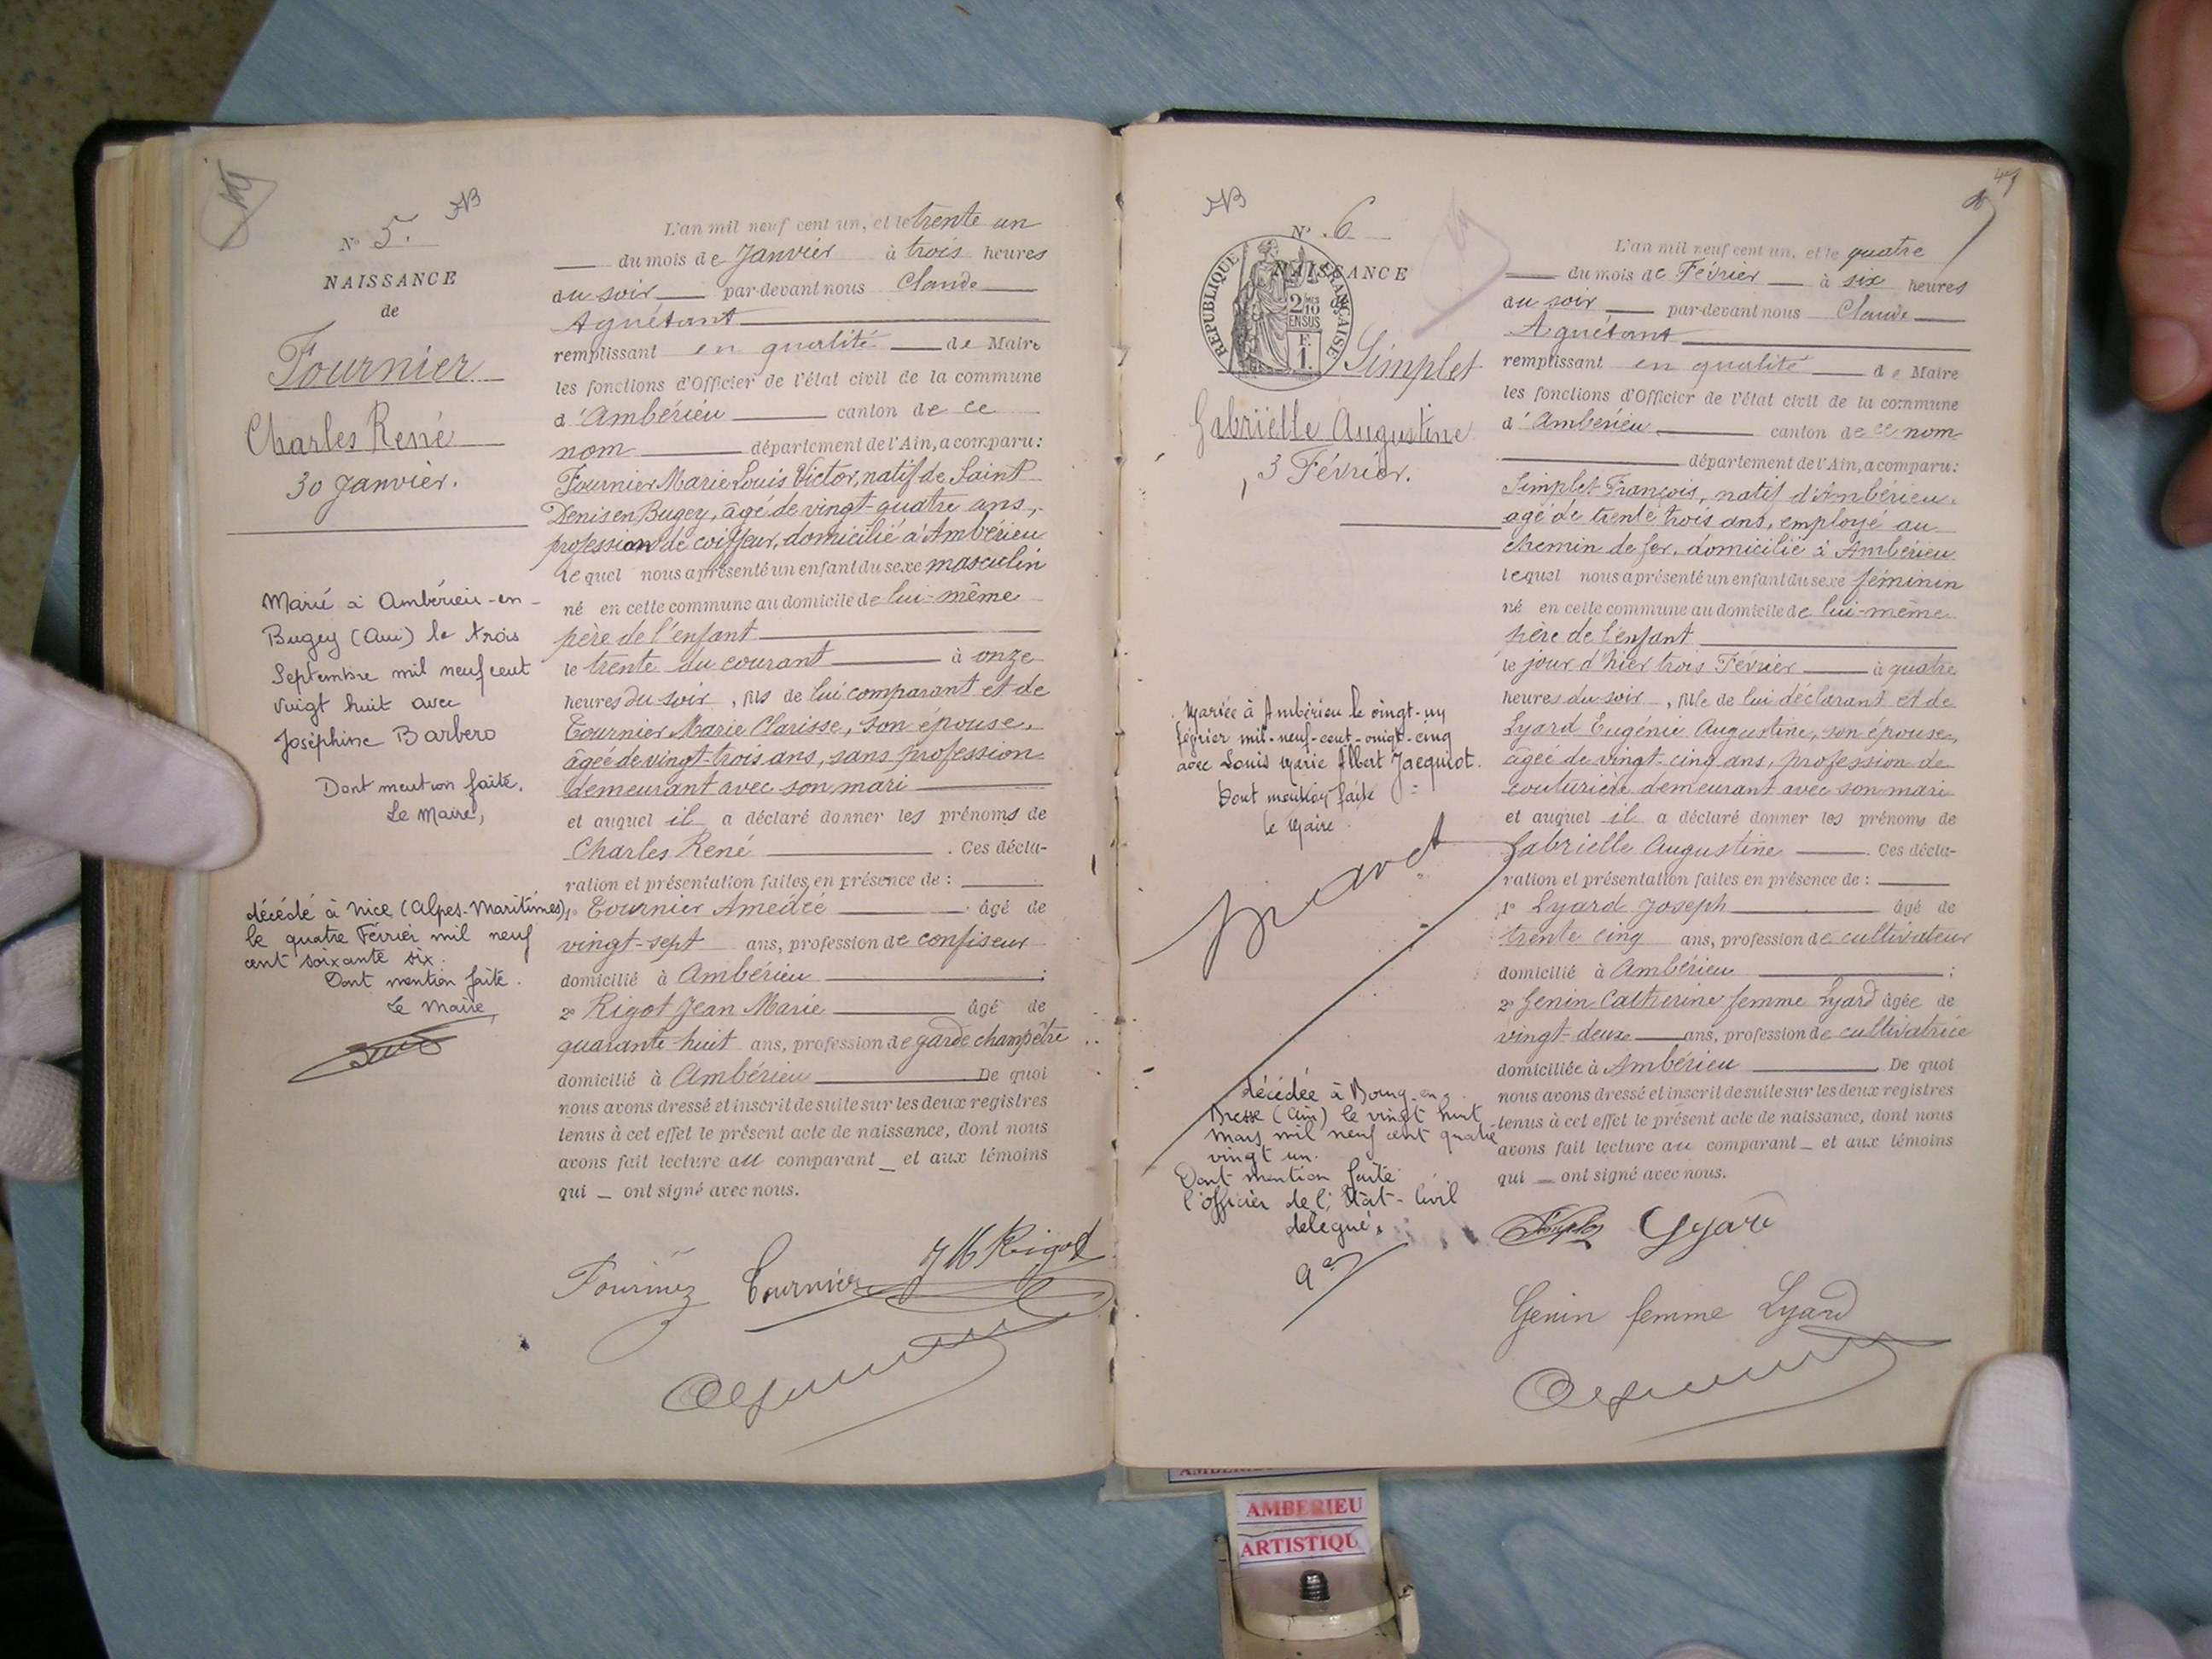 N° 5.
NAISSANCE
de
Fournier
Charles René
30 Janvier.
Marié à Ambérieu-en-
Bugey (Ain) le trois
Septembre mil neuf cent
vingt huit avec
Joséphine Barbero
Dont mention faite.
Le Maire,
décédé à Nice (Alpes-Maritimes)
le quatre Février mil neuf
cent soixante six.
Dont mention faite.
Le Maire,
L'an mil neuf cent un, et le trente un
du mois de Janvier à trois heures
du soir par-devant nous Claude
Aguétant
remplissant en qualité de Maire
les fonctions d'Officier de l'état civil de la commune
d'Ambérieu canton de ce
nom département de l'Ain, a comparu :
Fournier Marie Louis Victor, natif de Saint
Denis en Bugey, âgé de vingt-quatre ans,
profession de coiffeur, domicilié à Ambérieu
lequel nous a présenté un enfant du sexe masculin
né en cette commune au domicile de lui-même
père de l'enfant
le trente du courant à onze
heures du soir, fils de lui comparant et de
Tournier Marie Clarisse, son épouse,
âgée de vingt-trois ans, sans profession
demeurant avec son mari
et auquel il a déclaré donner les prénoms de
Charles René . Ces décla-
ration et présentation faites en présence de :
1° Tournier Amédée âgé de
vingt-sept ans, profession de confiseur
domicilié à Ambérieu ;
2° Rigot Jean Marie âgé de
quarante-huit ans, profession de garde champêtre
domicilié à Ambérieu De quoi
nous avons dressé et inscrit de suite sur les deux registres
tenus à cet effet le présent acte de naissance, dont nous
avons fait lecture au comparant et aux témoins
qui ont signé avec nous.
Fournier Tournier JM Rigot
N° 6
NAISSANCE
RÉPUBLIQUE FRANÇAISE
2/10
EN SUS
F.
1.
Simplet
Gabrielle Augustine
3 Février.
Mariée à Ambérieu le vingt-un
février mil-neuf-cent-vingt-cinq
avec Louis Marie Albert Jacquiot.
Dont mention faite
le Maire
décédée à Bourg-en-
Bresse (Ain) le vingt huit
mars mil neuf cent quatre
vingt un.
Dont mention faite
l'officier de l'Etat-Civil
délégué,
L'an mil neuf cent un, et le quatre
du mois de Février à six heures
du soir par-devant nous Claude
Aguétant
remplissant en qualité de Maire
les fonctions d'Officier de l'état civil de la commune
d'Ambérieu canton de ce nom
département de l'Ain, a comparu :
Simplet François, natif d'Ambérieu,
âgé de trente trois ans, employé au
chemin de fer, domicilié à Ambérieu
lequel nous a présenté un enfant du sexe féminin
né en cette commune au domicile de lui-même
père de l'enfant
le jour d'hier trois Février à quatre
heures du soir, fille de lui déclarant et de
Lyard Eugénie Augustine, son épouse,
âgée de vingt-cinq ans, profession de
couturière demeurant avec son mari
et auquel il a déclaré donner les prénoms de
Gabrielle Augustine . Ces décla-
ration et présentation faites en présence de :
1° Lyard Joseph âgé de
trente cinq ans, profession de cultivateur
domicilié à Ambérieu ;
2° Genin Catherine femme Lyard âgée de
vingt-deux ans, profession de cultivatrice
domiciliée à Ambérieu De quoi
nous avons dressé et inscrit de suite sur les deux registres
tenus à cet effet le présent acte de naissance, dont nous
avons fait lecture au comparant et aux témoins
qui ont signé avec nous.
Simplet Lyard
Genin femme Lyard
AMBERIEU
ARTISTIQU